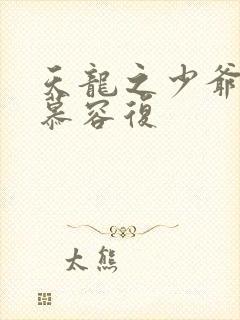 天龍之少爺
慕容復
太熊